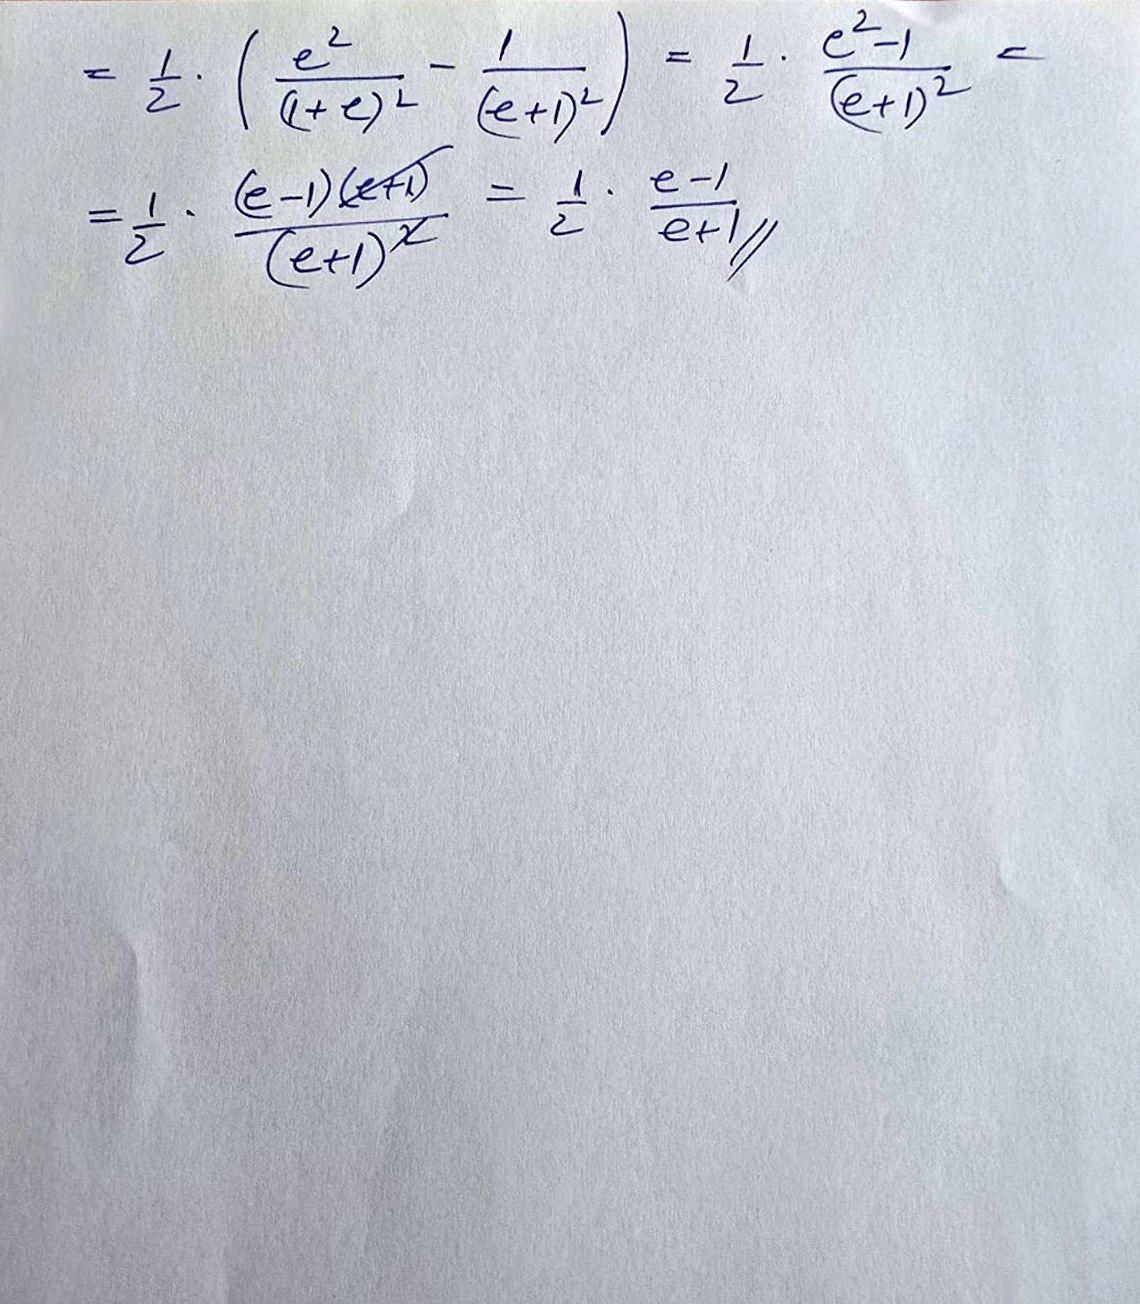 = 1/2 · ( e²/(1+e)² - 1/(e+1)² ) = 1/2 · e²-1/(e+1)² =
= 1/2 · (e-1)(e+1)/(e+1)² = 1/2 · e-1/e+1 //